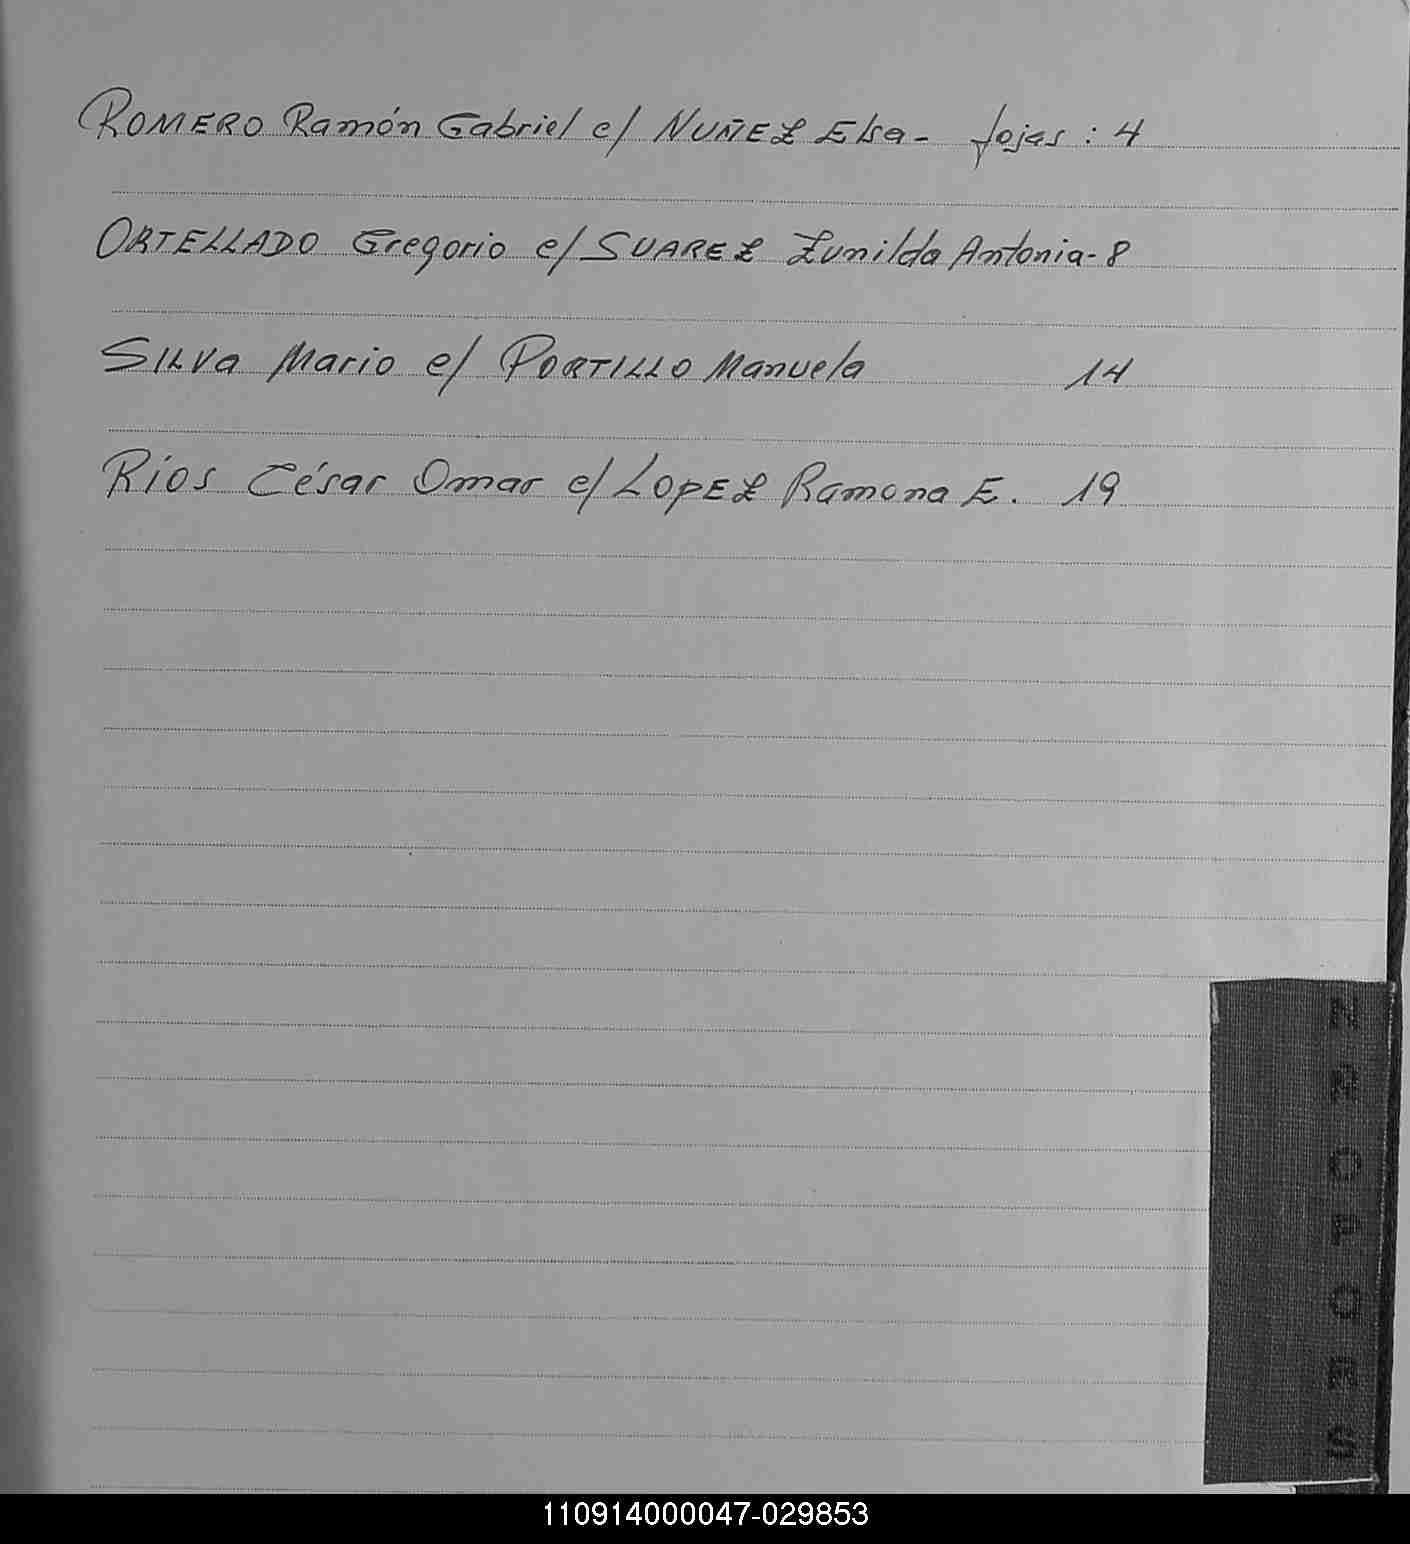 ROMERO Ramón Gabriel c/ NUÑEZ Elsa - fojas : 4
ORTELLADO Gregorio c/ SUAREZ Zunilda Antonia - 8
SILVA Mario c/ PORTILLO Manuela 14
Ríos César Omar c/ LOPEZ Ramona E. 19
110914000047-029853